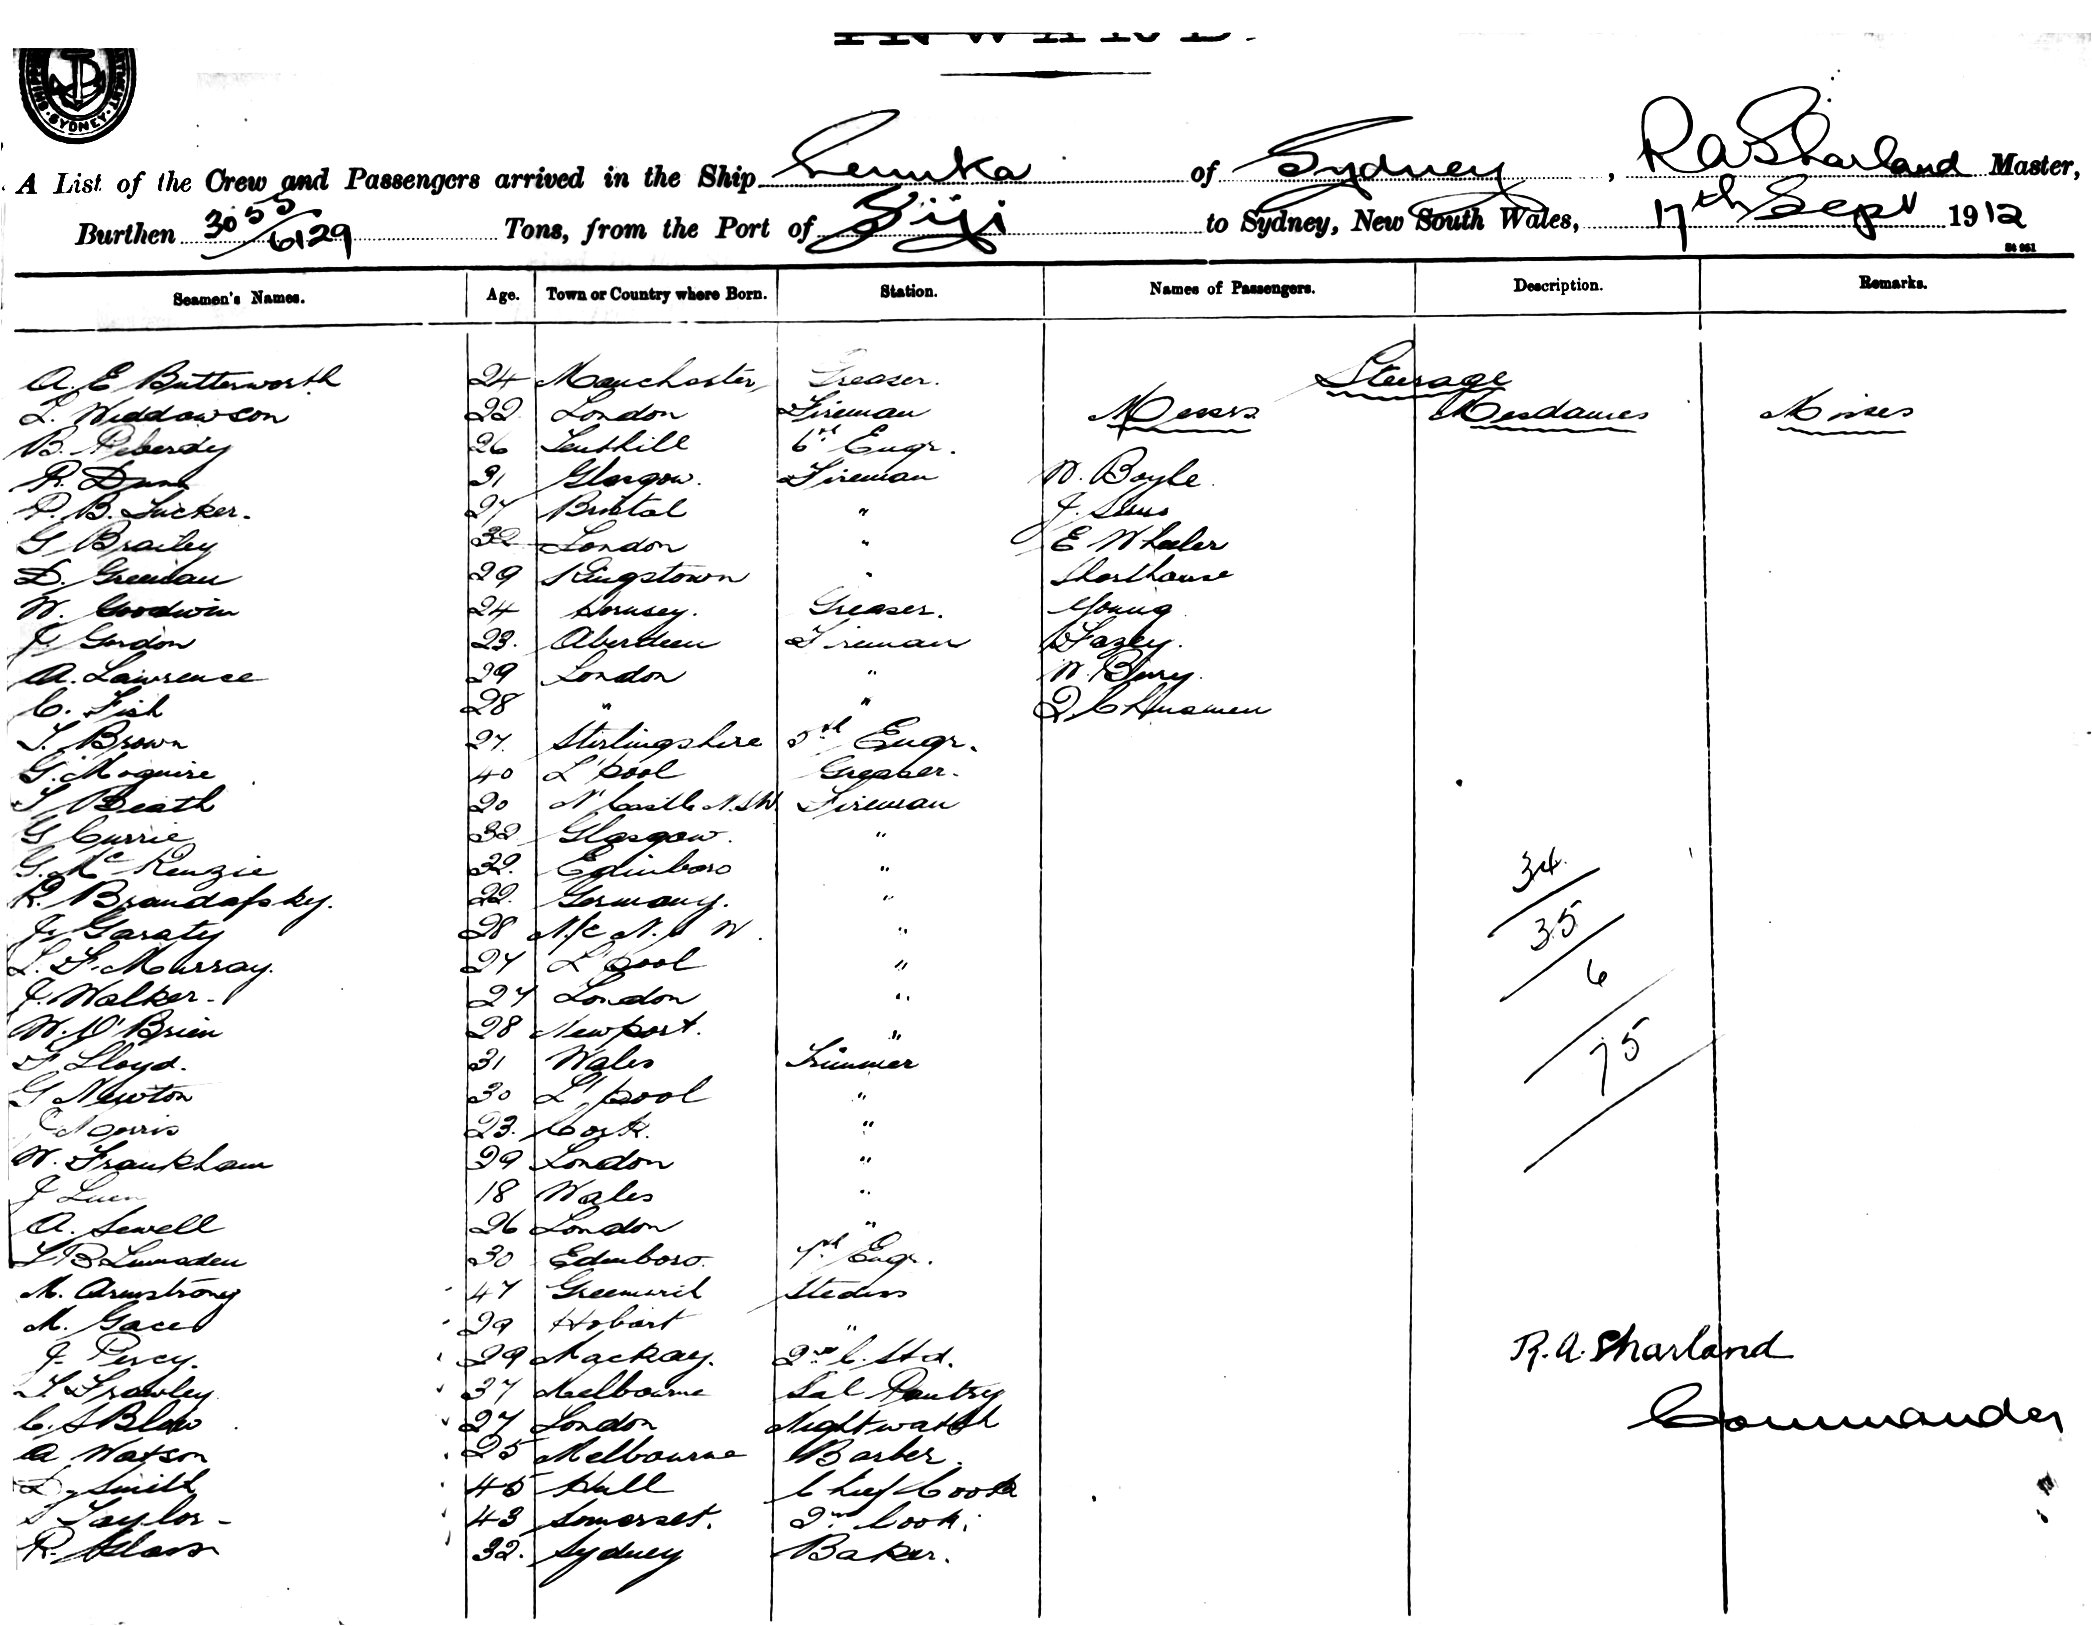 SYDNEY
A List of the Crew and Passengers arrived in the Ship Levuka of Sydney, R A Sharland Master,
Burthen 3055/6129 Tons, from the Port of Fiji to Sydney, New South Wales, 17th Sept 1912
St 951
Seamen's Names. Age. Town or Country where Born. Station. Names of Passengers. Description. Remarks.
A. E Butterworth 24 Manchester Greaser. Steerage
L. Widdowson 22 London Fireman Messrs Mesdames Misses
B. Peberdy 26 6th Engr.
R. Dunn 31 Glasgow. Fireman W. Boyle
P. B. Tucker. 27 Bristol " J. Sims
G Brailey 32 London " E Wheeler
D. Greenan 29 Kingstown " Shorthouse
W. Goodwin 24 Hornsey. Greaser. Young
J. Gordon 23. Aberdeen Fireman Fazey.
A. Lawrence 29 London " W. Bury.
C. Fish 28 " " 2 Chinamen
T. Brown 27. Stirlingshire 5th Engr.
G. Maguire 40 L'pool Greaser.
T Beath 20 N'Castle N.S.W. Fireman
G Currie 32 Glasgow. "
G. McKenzie 32. Edinboro "
R. Brandafsky. 22. Germany. "
J. Garaty 28 N/C N.S W. "
L. F. Murray. 27 L'pool "
J. Walker. 27 London "
W. O'Brien 28 Newport. "
F Lloyd. 31 Wales Trimmer
G Newton 30 L'pool "
Norris 23. Cork. "
W. Frankham 29 London "
J 18 Wales "
A. Sewell 26 London "
L B Lumsden 30 Edinboro. 7th Engr.
M. Armstrong 47 Greenwich Stedss
M. Gace 29 Hobart "
J. Percy. 29 Mackay. 2nd C. Std.
T Frawley 37 Melbourne Sal Pantry
C. S Blow 27 London Nightwatch
A Watson 25 Melbourne Barber.
D. Smith 45 Hull Chief Cook
S Taylor 43 Somerset. 2nd Cook.
R. Glass 32. Sydney Baker.
34
35
6
75
R. A. Sharland
Commander